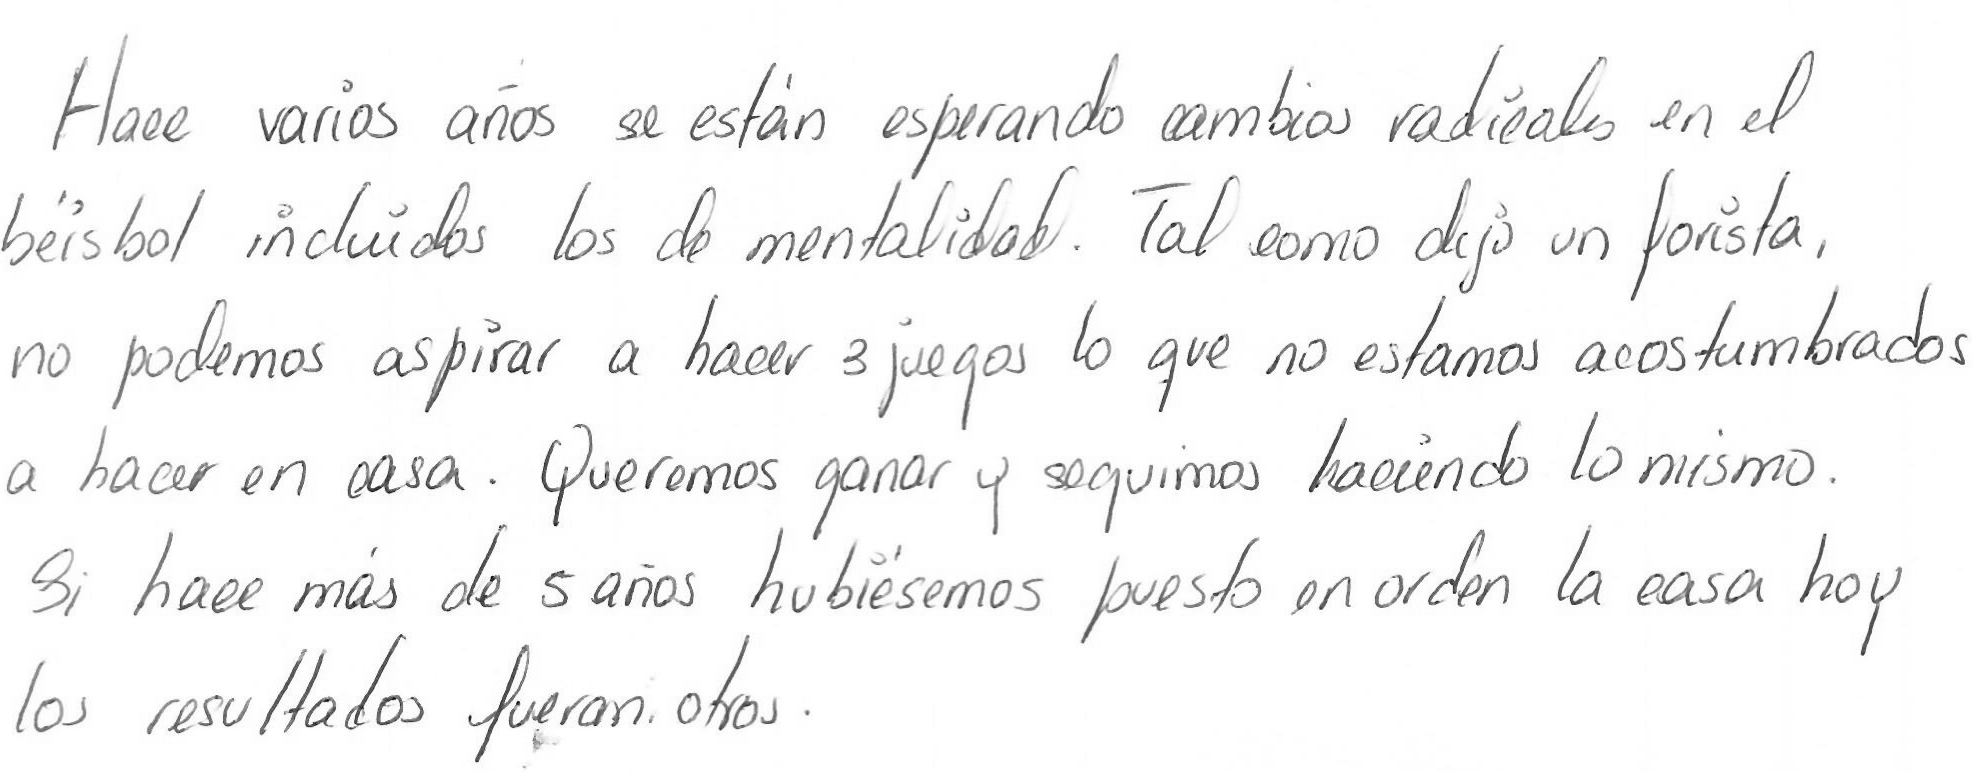 Hace varios años se están esperando cambios radicales en el
béisbol incluidos los de mentalidad. Tal como dijo un forista,
no podemos aspirar a hacer 3 juegos lo que no estamos acostumbrados
a hacer en casa. Queremos ganar y seguimos haciendo lo mismo.
Si hace más de 5 años hubiésemos puesto en orden la casa hoy
los resultados fueran otros.